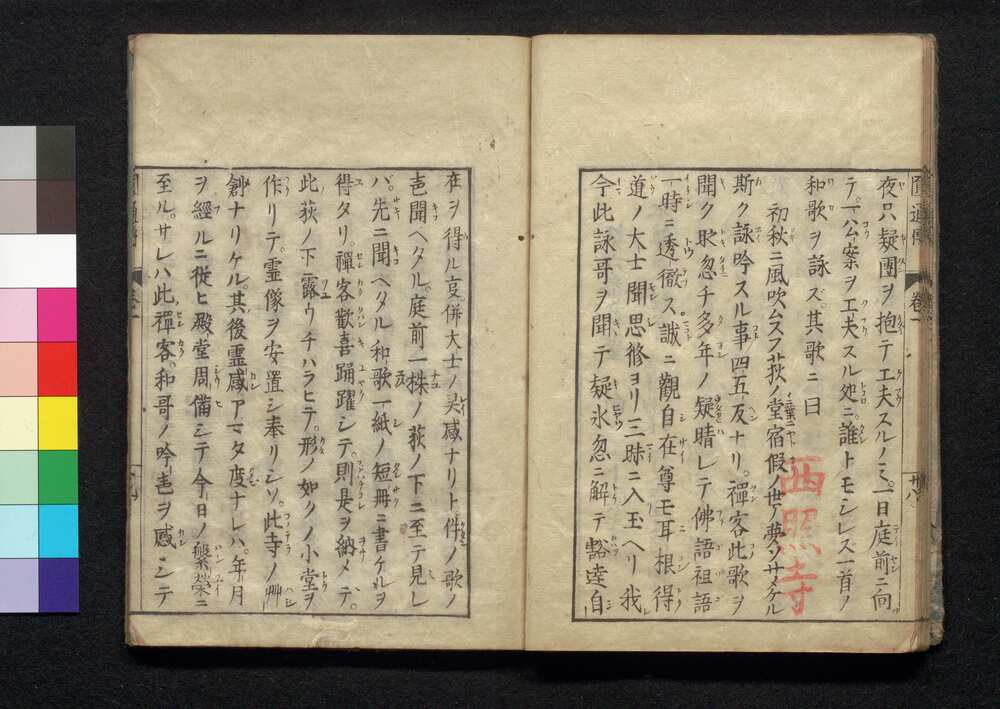 夜只疑團ヲ抱テ工夫スルノミ。一日庭前ニ向
テ。公案ヲ工夫スル処ニ。誰トモシレズ一首ノ
和歌ヲ詠ズ。其歌ニ曰
初秋ニ風吹ムスフ荻ノ堂宿假ノ世ノ夢ソサメケル
斯ク詠吟スル事四五反ナリ。禪客此歌ヲ
聞ク时忽チ多年ノ疑晴レテ佛語祖語
一時ニ透徹ス。誠ニ觀自在尊モ耳根得
道ノ大士聞思修ヨリ三昧ニ入玉ヘリ我
今此詠哥ヲ聞テ疑氷忽ニ解テ豁達自
在ヲ得ル㕝。併大士ノ灵感ナリト。件ノ歌ノ
聞ヘタル。庭前一株ノ荻ノ下ニ至テ見レ
バ。先ニ聞ヘタル和歌一紙ノ短冊ニ書ケルヲ
得タリ。禪客歡喜踊躍シテ。則是ヲ納メテ。
此荻ノ下露ウチハラヒテ。形ノ如クノ小堂ヲ
作リテ。霊像ヲ安置シ奉リシソ。此寺ノ艸
創ナリケル。其後霊感アマタ度ナレハ。年月
ヲ經ルニ從ヒ殿堂周備シテ今日ノ繁榮ニ
至ル。サレハ此禪客。和哥ノ吟ヲ感シテ
圓通傳 卷一
廿八
西照寺